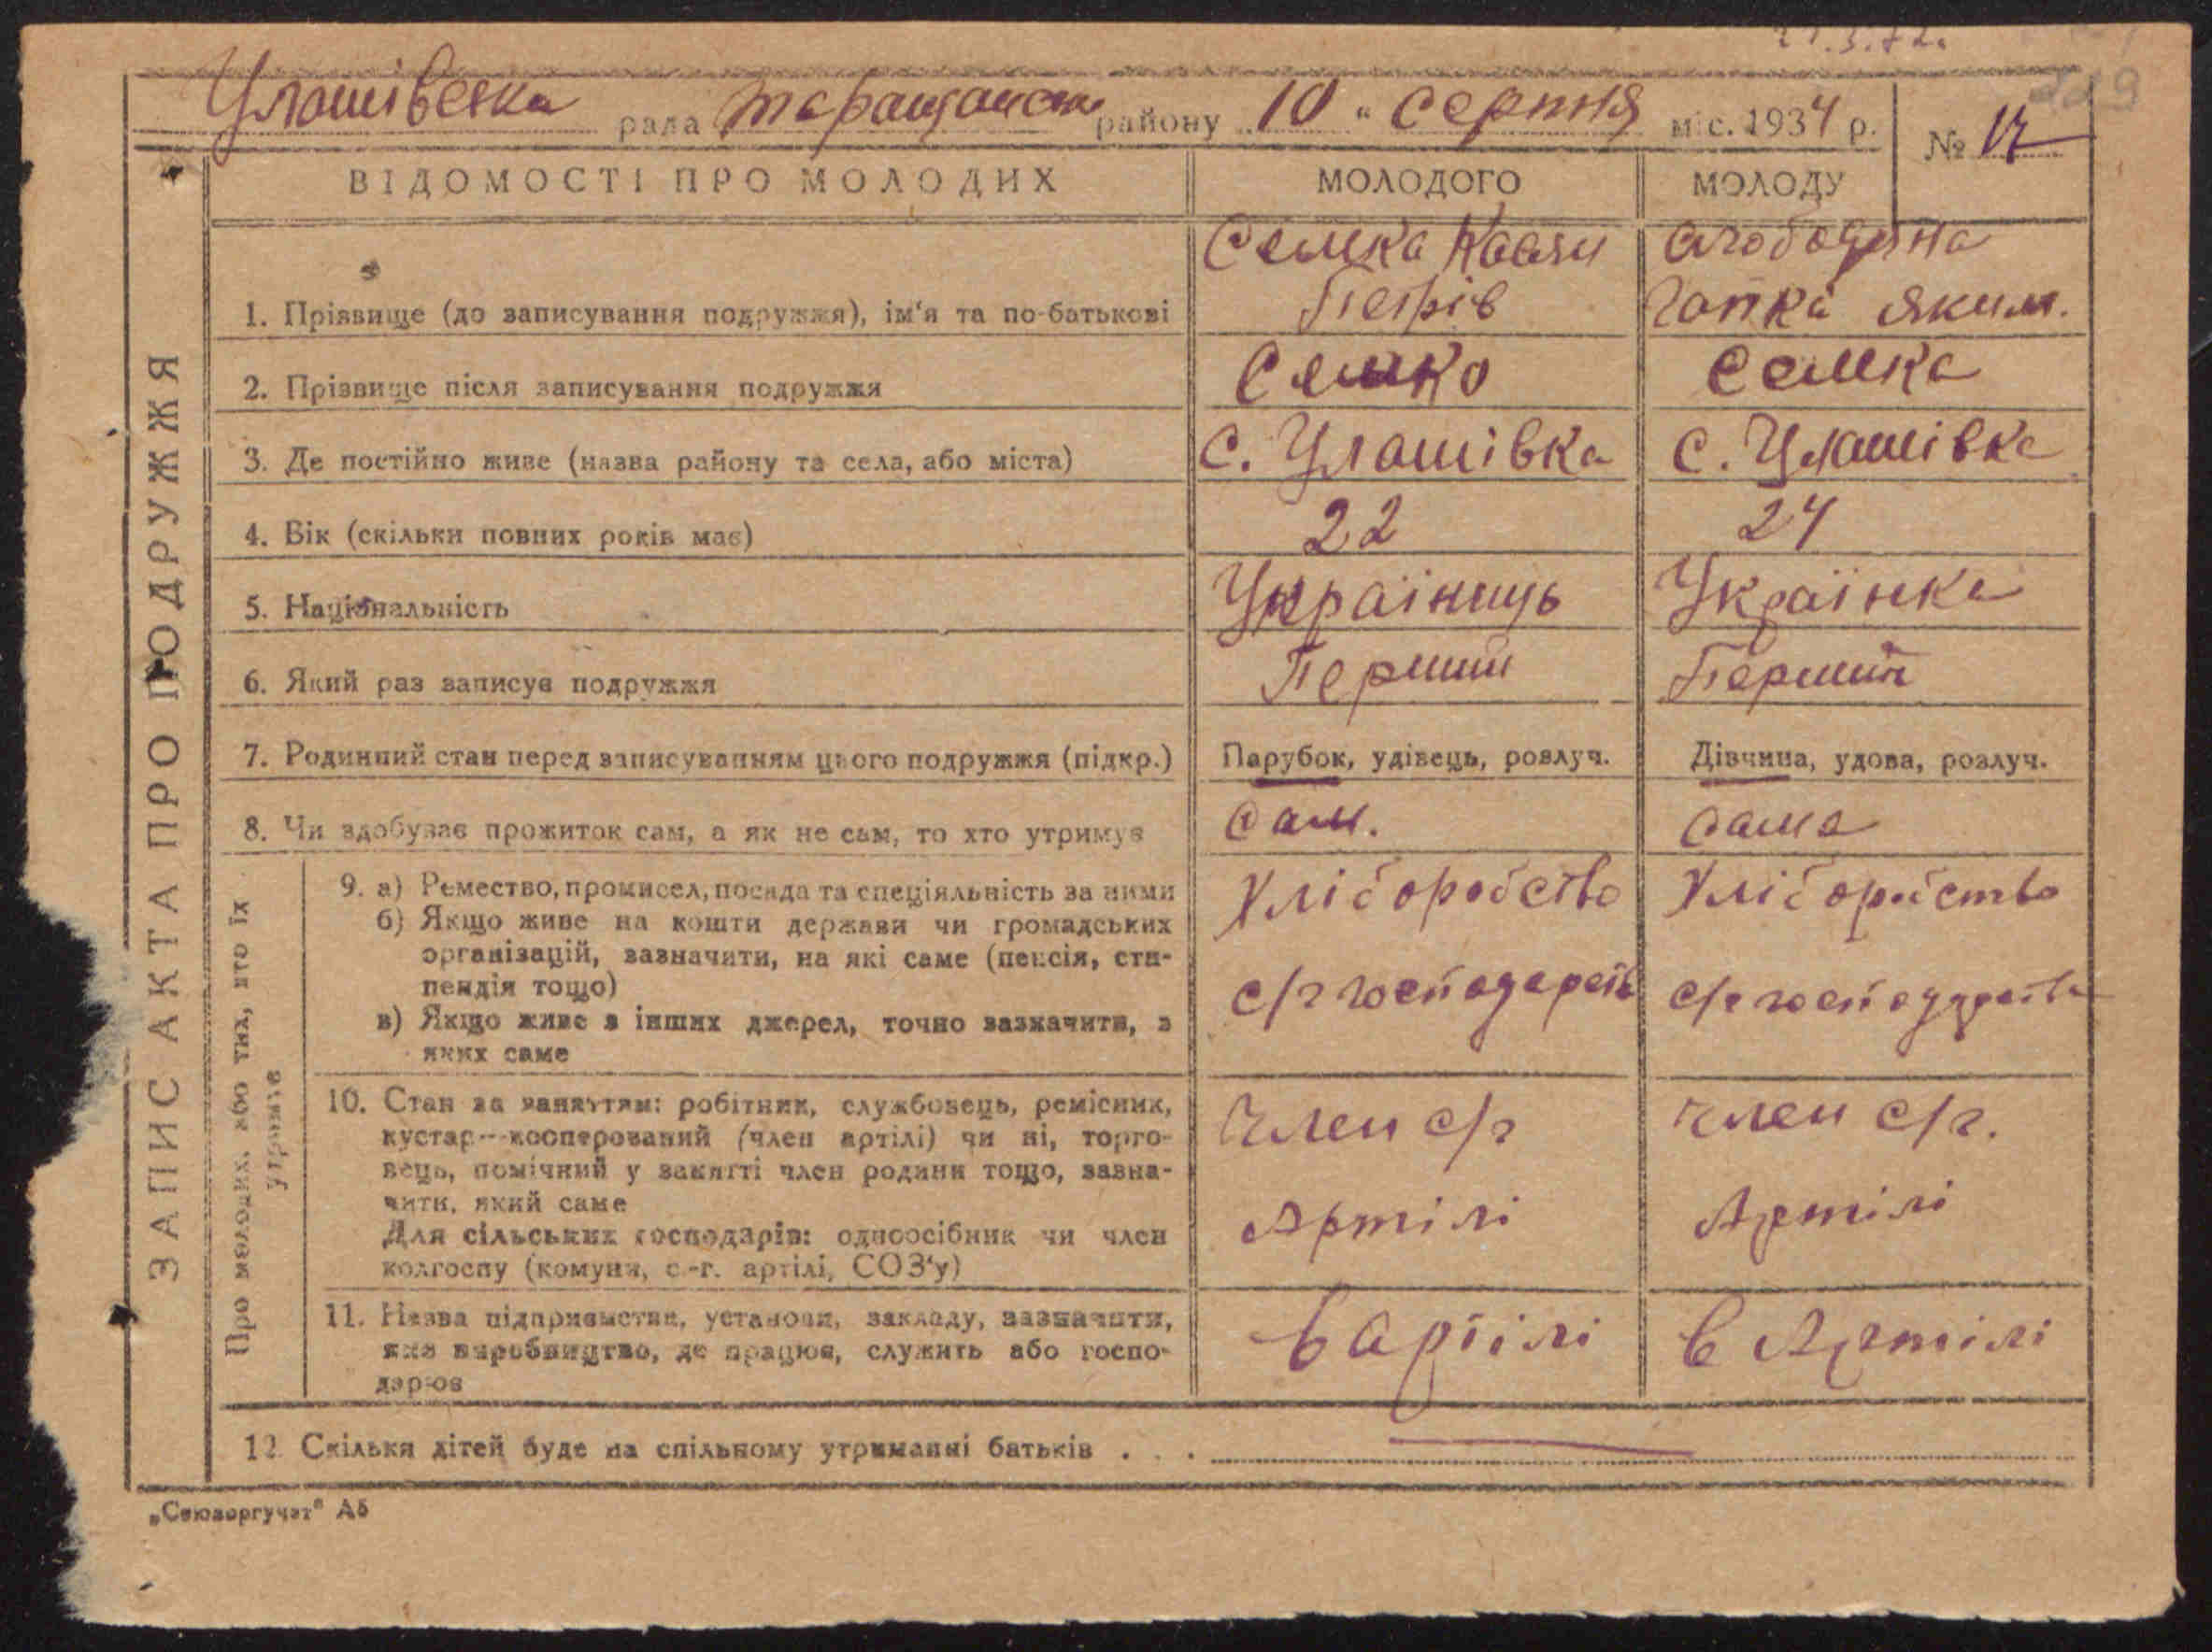 Улашівська рада Таращанськ району 10 " Серпня міс. 1934 р.
№ 17
ЗАПИС АКТА ПРО ПОДРУЖЖЯ
ВІДОМОСТІ ПРО МОЛОДИХ МОЛОДОГО МОЛОДУ
Семка Слободяна
1. Прізвище (до записування подружжя), ім'я та по-батькові Петрів Гапка Яким.
2. Прізвище після записування подружжя Семко Семка
3. Де постійно живе (назва району та села, або міста) с. Улашівка с. Улашівка
4. Вік (скільки повних років має) 22 24
5. Національність Українець Українка
6. Який раз записує подружжя Перший Перший
7. Родинний стан перед записуванням цього подружжя (підкр.) Парубок, удівець, розлуч. Дівчина, удова, розлуч.
8. Чи здобуває прожиток сам, а як не сам, то хто утримує Сам. Сама
Про молодих, або тих, хто їх утримує
9. а) Ремество, промисел, посада та спеціяльність за ними Хліборобство Хліборобство
б) Якщо живе на кошти держави чи громадських
організацій, зазначити, на які саме (пенсія, сти-
пендія тощо) с/г господарств с/г господарства
в) Якщо живе з інших джерел, точно зазначити, з
яких саме
10. Стан за заняттям: робітник, службовець, ремісник, Член с/г член с/г.
кустар--кооперований (член артілі) чи ні, торго-
вець, помічний у занятті член родини тощо, зазна-
чити, який саме Артілі Артілі
Для сільських господарів: одноосібник чи член
колгоспу (комуни, с.-г. артілі, СОЗ'у)
11. Назва підприємства, установи, закладу, зазначити,
яке виробництво, де працює, служить або госпо- в Артілі в Артілі
дарює
12. Скільки дітей буде на спільному утриманні батьків . . .
„Союзоргучет" А5